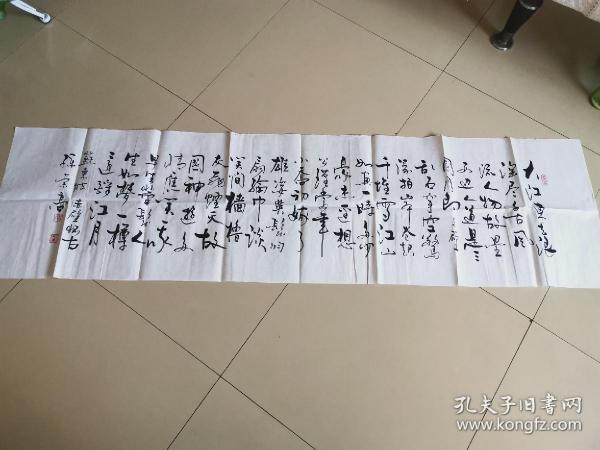 大江东去浪
淘尽千古风
流人物故垒
西边人道是三
国周郎赤壁
乱石穿空惊
涛拍岸卷起
千堆雪江山
如画一时多少
豪杰遥想
公瑾当年
小乔初嫁了
雄姿英发羽
扇纶巾谈
笑间樯橹
灰飞烟灭故
国神游多
情应笑我
早生华发人
生如梦一樽
还酹江月
苏东坡赤壁怀古
孔夫子旧书网
www.kongfz.com